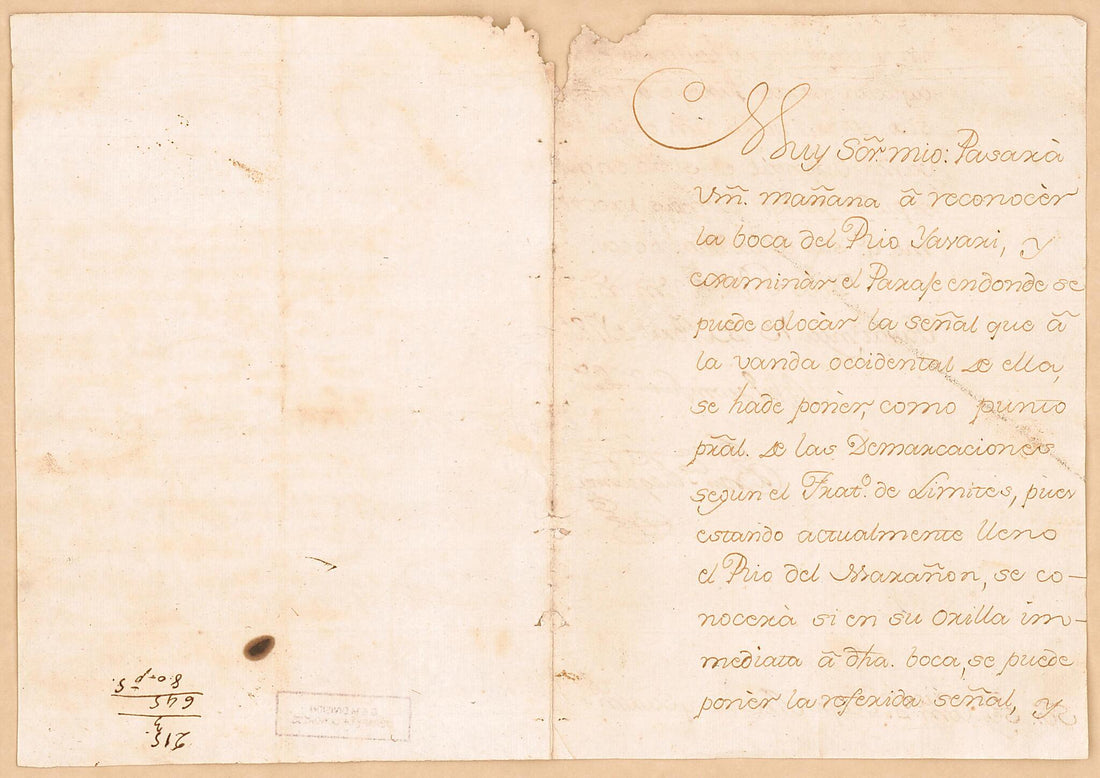 Muy Sõr. mio: Pasarà
Vm̃. mañana â reconocèr
la boca del Rio Yavari, y
examinàr el Paraje endonde se
puede colocàr la señal que â
la vanda occidental de ella,
se hade ponèr, como punto
prãl. de las Demarcaciones
segun el Trat.º de Limites, pues
estando actualmente lleno
el Rio del Marañon, se co-
nocerà si en su orilla im-
mediata â dha. boca, se puede
ponèr la referida señal, y
215
3
645